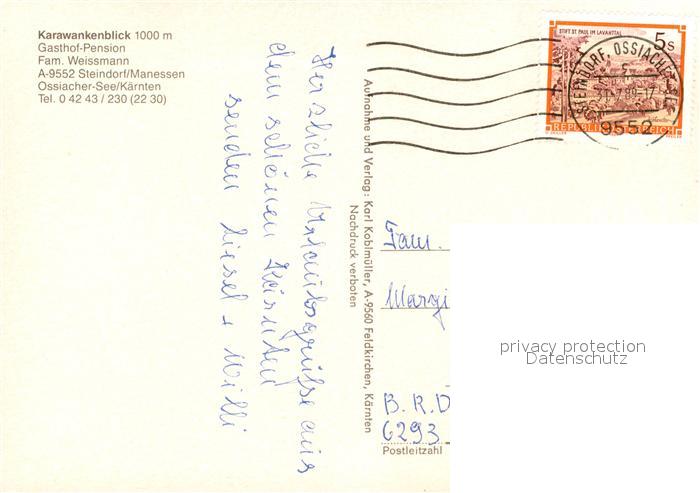 Karawankenblick 1000 m
Gasthof-Pension
Fam. Weissmann
A-9552 Steindorf/Manessen
Ossiacher-See/Kärnten
Tel. 0 42 43 / 230 (22 30)
Herzliche Urlaubsgrüße aus
dem schönen Kärnten
senden Liesel + Willi
Aufnahme und Verlag: Karl Koblmüller, A-9560 Feldkirchen, Kärnten
Nachdruck verboten
STIFT ST. PAUL IM LAVANTTAL
5 S
REPUBLIK ÖSTERREICH
STEINDORF, OSSIACHER SEE
9552
Fam.
Margi
B. R. D
6293
Postleitzahl
privacy protection
Datenschutz